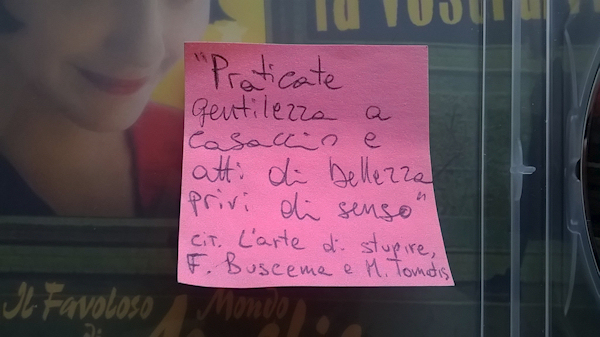 la vostra
"Praticate
gentilezza a
casaccio e
atti di bellezza
privi di senso"
cit. L'arte di stupire,
F. Buscema e M. Tomatis
Il Favoloso Mondo
di